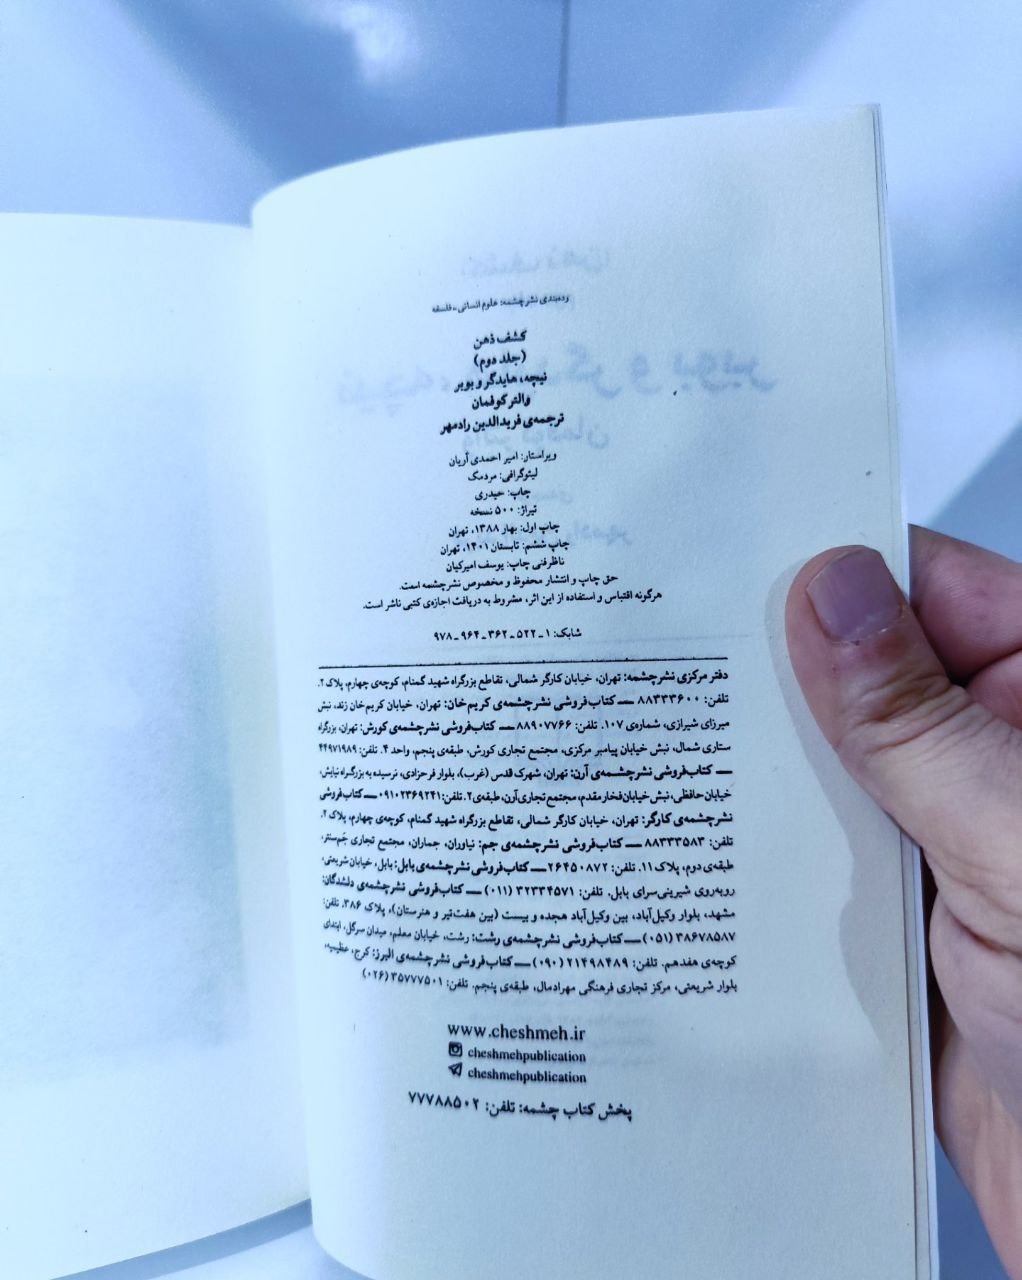 رده‌بندی نشرچشمه: علوم انسانی ـ فلسفه
کشف ذهن
(جلد دوم)
نیچه، هایدگر و بوبر
والتر کوفمان
ترجمه‌ی فریدالدین رادمهر
ویراستار: امیر احمدی آریان
لیتوگرافی: مردمک
چاپ: حیدری
تیراژ: ۵۰۰ نسخه
چاپ اول: بهار ۱۳۸۸، تهران
چاپ ششم: تابستان ۱۴۰۱، تهران
ناظر فنی چاپ: یوسف امیرکیان
حق چاپ و انتشار محفوظ و مخصوص نشرچشمه است.
هرگونه اقتباس و استفاده از این اثر، مشروط به دریافت اجازه‌ی کتبی ناشر است.
شابک: ۱ـ۵۲۲ـ۳۶۲ـ۹۶۴ـ۹۷۸
دفتر مرکزی نشرچشمه: تهران، خیابان کارگر شمالی، تقاطع بزرگراه شهید گمنام، کوچه‌ی چهارم، پلاک ۲.
تلفن: ۸۸۳۳۳۶۰۰ — کتاب‌فروشی نشرچشمه‌ی کریم‌خان: تهران، خیابان کریم‌خان زند، نبش
میرزای شیرازی، شماره‌ی ۱۰۷. تلفن: ۸۸۹۰۷۷۶۶ — کتاب‌فروشی نشرچشمه‌ی کورش: تهران، بزرگراه
ستاری شمال، نبش خیابان پیامبر مرکزی، مجتمع تجاری کورش، طبقه‌ی پنجم، واحد ۴. تلفن: ۴۴۹۷۱۹۸۹
— کتاب‌فروشی نشرچشمه‌ی آرن: تهران، شهرک قدس (غرب)، بلوار فرحزادی، نرسیده به بزرگراه نیایش،
خیابان حافظی، نبش خیابان فخارمقدم، مجتمع تجاری آرن، طبقه‌ی ۲. تلفن: ۰۹۱۰۲۳۶۹۲۴۱ — کتاب‌فروشی
نشرچشمه‌ی کارگر: تهران، خیابان کارگر شمالی، تقاطع بزرگراه شهید گمنام، کوچه‌ی چهارم، پلاک ۲.
تلفن: ۸۸۳۳۳۵۸۳ — کتاب‌فروشی نشرچشمه‌ی جم: نیاوران، جماران، مجتمع تجاری جَم‌سنتر،
طبقه‌ی دوم، پلاک ۱۱. تلفن: ۲۶۴۵۰۸۷۲ — کتاب‌فروشی نشرچشمه‌ی بابل: بابل، خیابان شریعتی،
روبه‌روی شیرینی‌سرای بابل. تلفن: ۳۲۳۳۴۵۷۱ (۰۱۱) — کتاب‌فروشی نشرچشمه‌ی دلشدگان:
مشهد، بلوار وکیل‌آباد، بین وکیل‌آباد هجده و بیست (بین هفت‌تیر و هنرستان)، پلاک ۳۸۶. تلفن:
۳۸۶۷۸۵۸۷ (۰۵۱) — کتاب‌فروشی نشرچشمه‌ی رشت: رشت، خیابان معلم، میدان سرگل، ابتدای
کوچه‌ی هفدهم. تلفن: ۲۱۴۹۸۴۸۹ (۰۹۰) — کتاب‌فروشی نشرچشمه‌ی البرز: کرج، عظیمیه،
بلوار شریعتی، مرکز تجاری فرهنگی مهرادمال، طبقه‌ی پنجم. تلفن: ۳۵۷۷۷۵۰۱ (۰۲۶)
www.cheshmeh.ir
cheshmehpublication
cheshmehpublication
پخش کتاب چشمه: تلفن: ۷۷۷۸۸۵۰۲